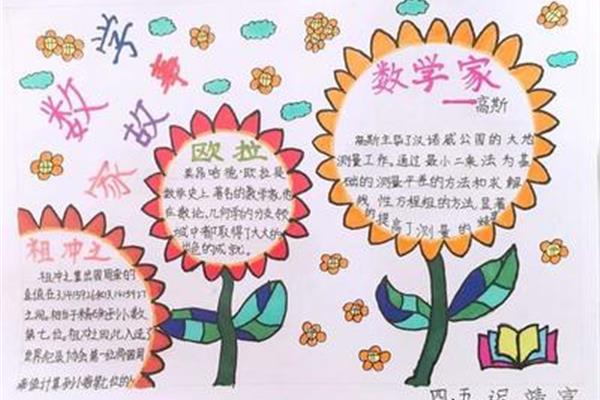 数学家故事
数学家
一高斯
高斯主导了汉诺威公国的大地
测量工作。通过最小二乘法为基
础的测量平差的方法和求解
线性方程组的方法,显著
的提高了测量的
欧拉
莱昂哈德·欧拉是
数学史上著名的数学家,他
在数论、几何学的分支领
域中都取得了大大的
出色的成就。
祖冲之
祖冲之算出圆周率的
真值在3.1415926和3.1415927
之间。相当于精确到小数
第七位。祖冲之因此入选了
世界纪录协会第一位将圆周
率值计算到小数第七位的
四、五